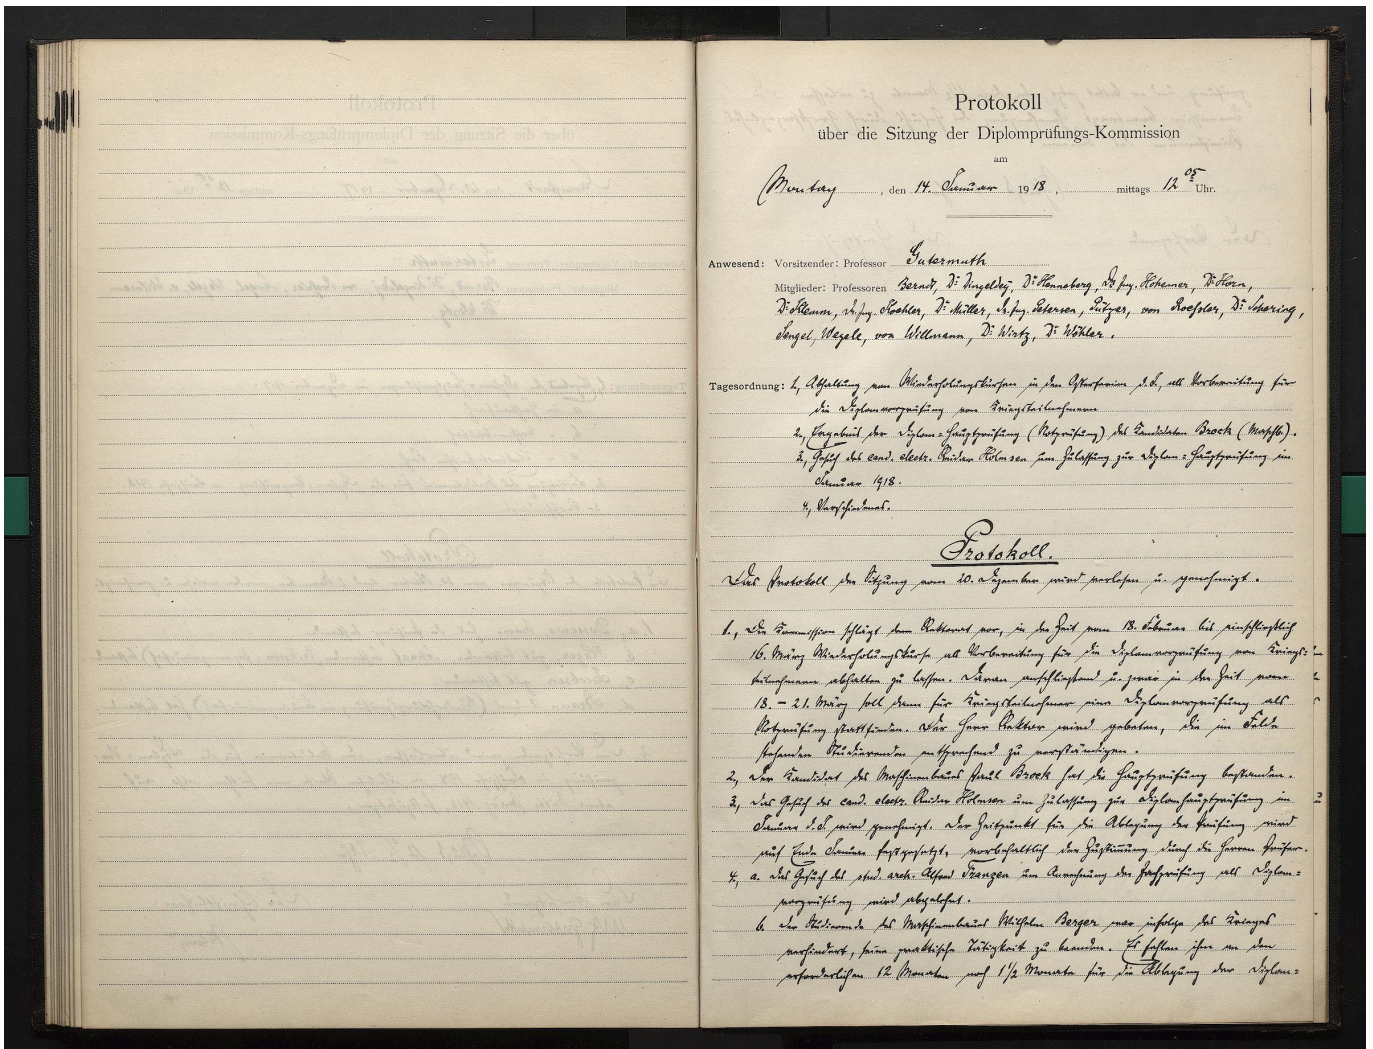 Protokoll
über die Sitzung der Diplomprüfungs-Kommission
am
Montag, den 14. Januar 1918, mittags 12 05 Uhr.
Anwesend: Vorsitzender: Professor Gutermuth
Mitglieder: Professoren Berndt, Dr. Dingeldey, Dr. Henneberg, Dr. Ing. Hohenner, Dr. Horn,
Dr. Klemm, Dr. Ing. Koehler, Dr. Müller, Dr. Ing. Petersen, Pützer, von Roeßler, Dr. Schering,
Sengel, Wegele, von Willmann, Dr. Wirtz, Dr. Wöhler.
Tagesordnung: 1., Abhaltung von Wiederholungskursen in den Osterferien d. J., als Vorbereitung für
die Diplomvorprüfung von Kriegsteilnehmern
2., Ergebnis der Diplom-Hauptprüfung (Notprüfung) des Kandidaten Brock (Maschb.).
3., Gesuch des cand. electr. Reidar Holmsen um Zulassung zur Diplom-Hauptprüfung im
Januar 1918.
4., Verschiedenes.
Protokoll.
Das Protokoll der Sitzung vom 20. Dezember wird verlesen u. genehmigt.
1., Die Kommission schlägt dem Rektorat vor, in der Zeit vom 18. Februar bis einschließlich
16. März Wiederholungskurse als Vorbereitung für die Diplomvorprüfung von Kriegs-
teilnehmern abhalten zu lassen. Daran anschließend u. zwar in der Zeit vom
18. – 21. März soll dann für Kriegsteilnehmer eine Diplomvorprüfung als
Notprüfung stattfinden. Der Herr Rektor wird gebeten, die im Felde
stehenden Studierenden entsprechend zu verständigen.
2., Der Kandidat des Maschinenbaues Paul Brock hat die Hauptprüfung bestanden.
3., Das Gesuch des cand. electr. Reidar Holmsen um Zulassung zur Diplomhauptprüfung im
Januar d. J. wird genehmigt. Der Zeitpunkt für die Ablegung der Prüfung wird
auf Ende Januar festgesetzt, vorbehaltlich der Zustimmung durch die Herren Prüfer.
4., a. Das Gesuch des stud. arch. Alfred Franzen um Anrechnung der Fachprüfung als Diplom-
vorprüfung wird abgelehnt.
b. Der Studierende des Maschinenbaues Wilhelm Berger war infolge des Krieges
verhindert, seine praktische Tätigkeit zu beenden. Es fehlen ihm an den
erforderlichen 12 Monaten noch 1 1/2 Monate für die Ablegung der Diplom-